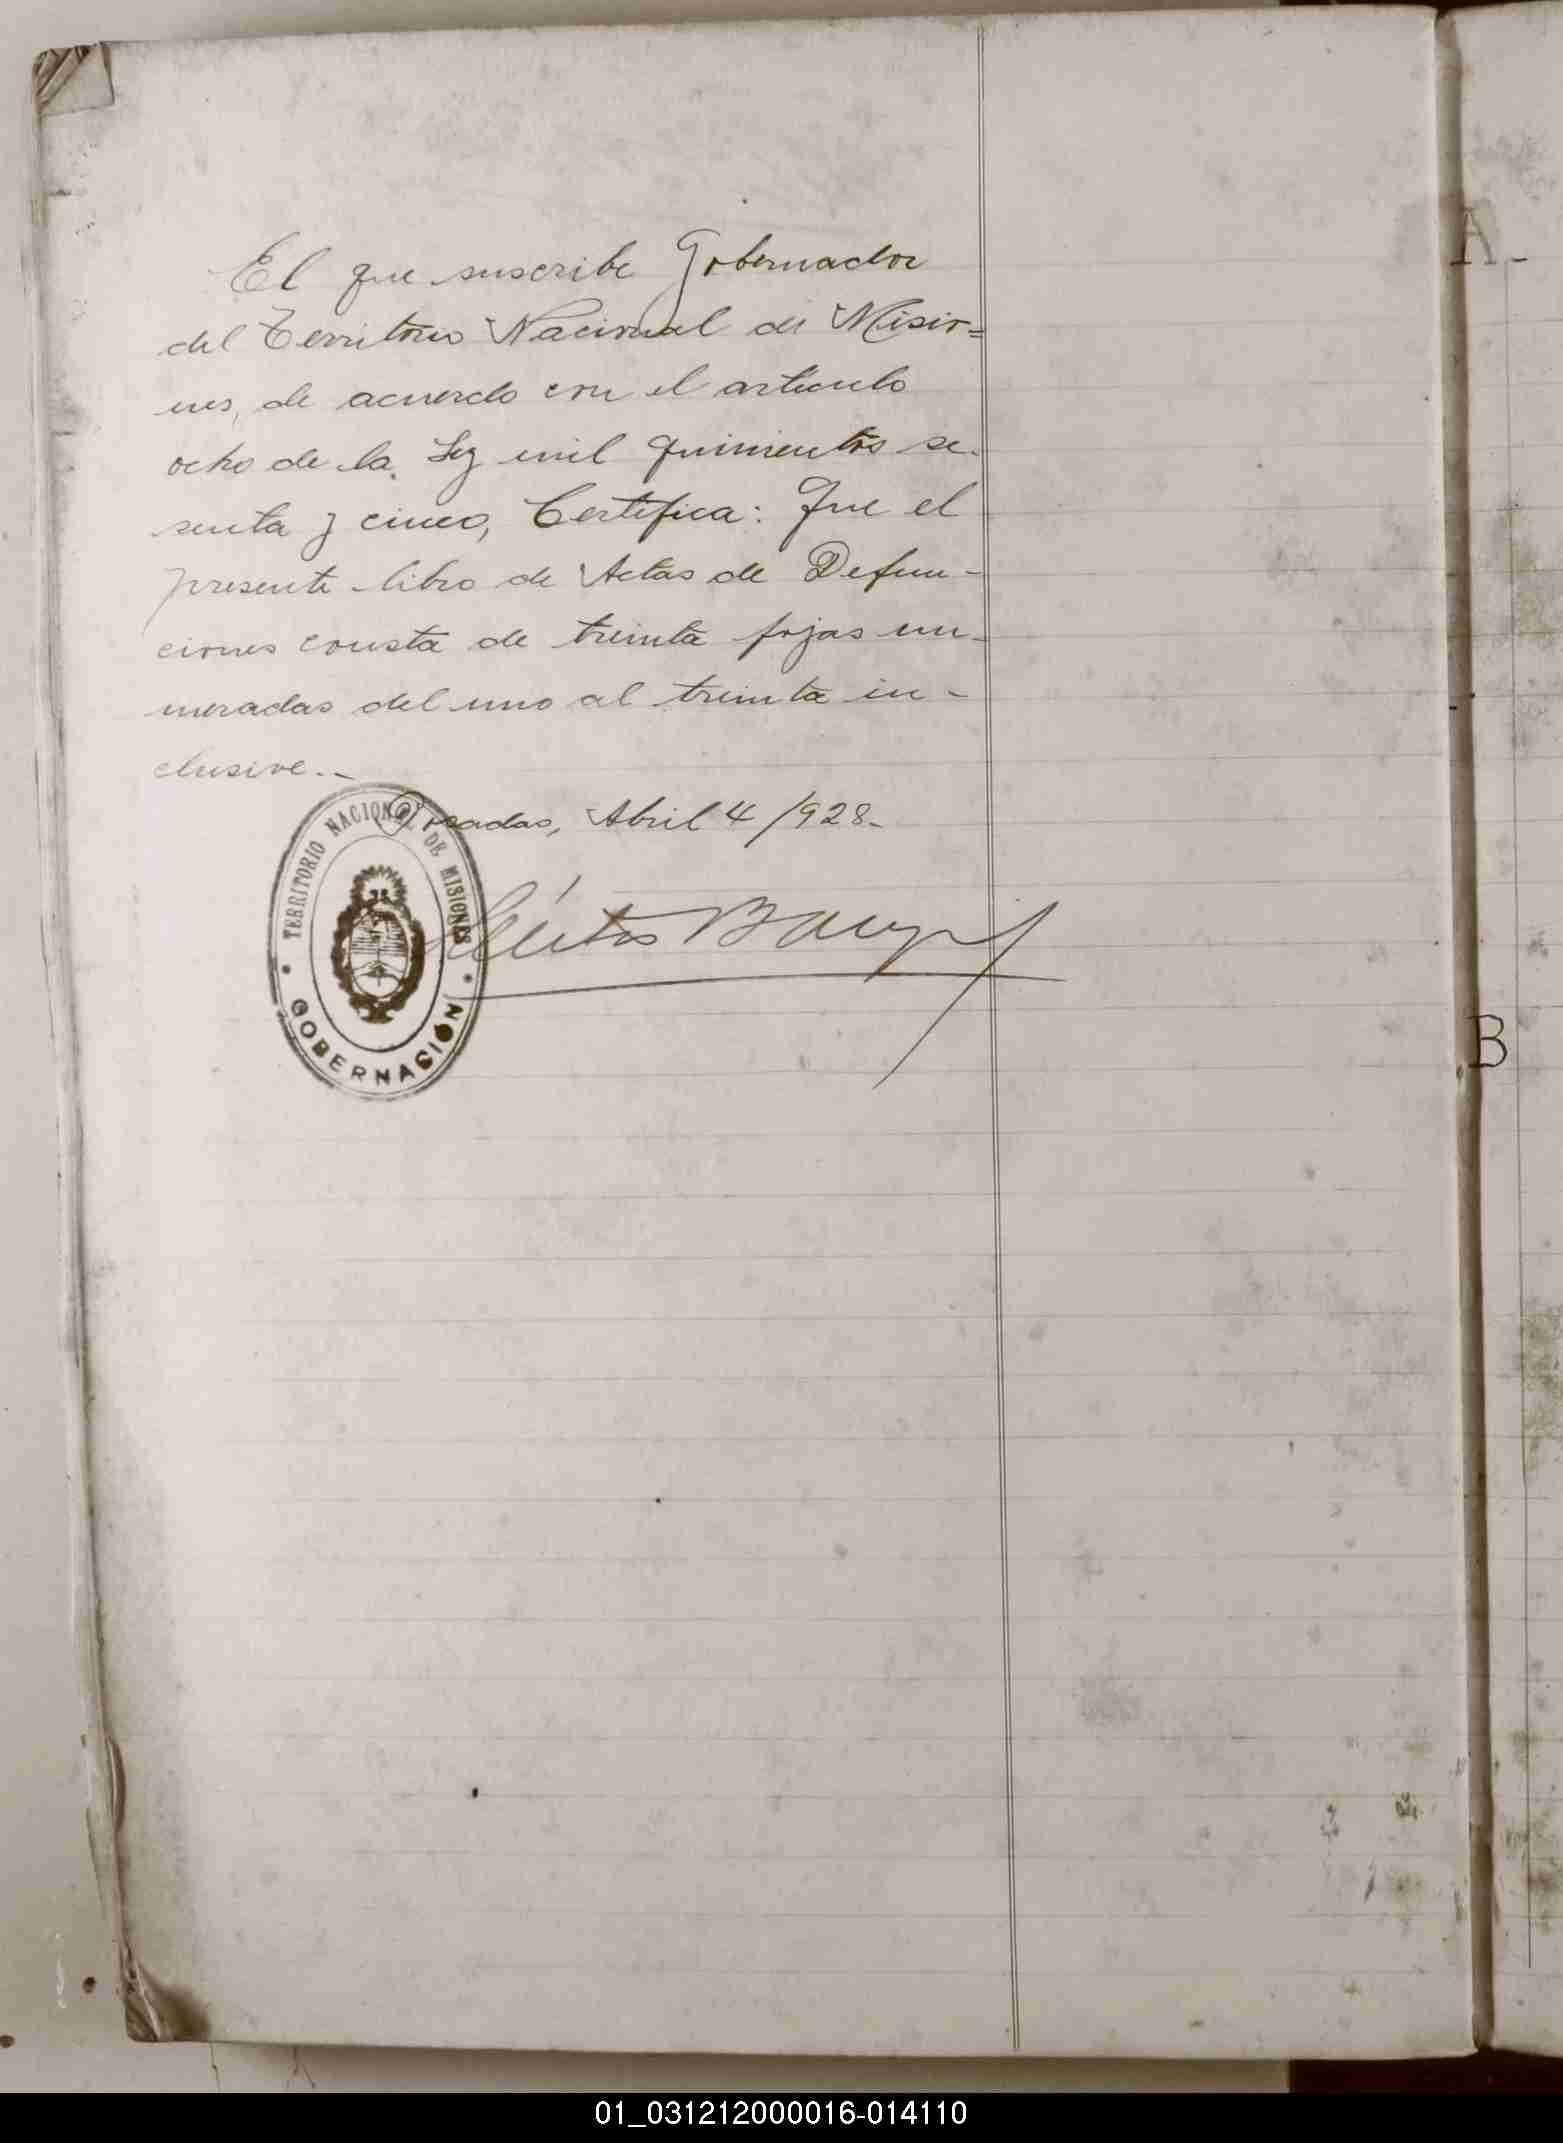 El que suscribe Gobernador
del Territorio Nacional de Misio=
nes, de acuerdo con el artículo
ocho de la Ley mil quinientos se-
senta y cinco, Certifica: Que el
presente libro de Actas de Defun-
ciones consta de treinta fojas nu-
meradas del uno al treinta in-
clusive.-
Posadas, Abril 4/928-
TERRITORIO NACIONAL DE MISIONES
GOBERNACIÓN
Héctor Barreyro
A-
B
01_031212000016-014110